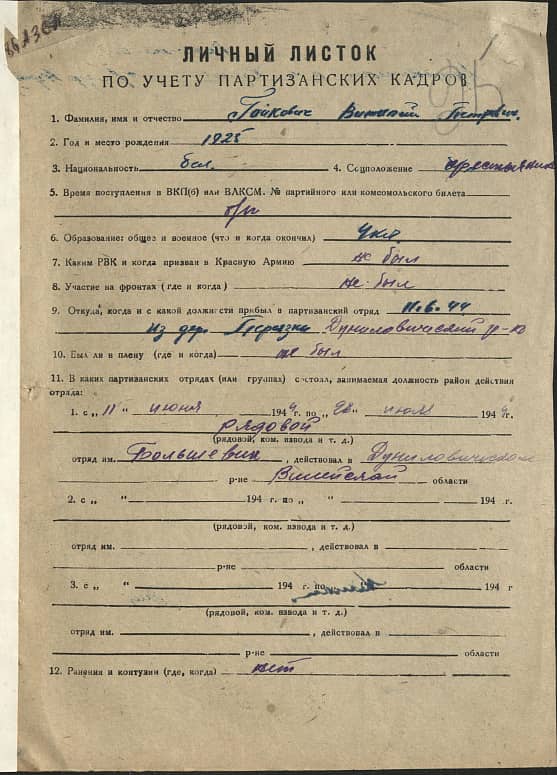 ЛИЧНЫЙ ЛИСТОК
ПО УЧЕТУ ПАРТИЗАНСКИХ КАДРОВ
1. Фамилия, имя и отчество Гойкович Виталий Петрович.
2. Год и место рождения 1925
3. Национальность бел. 4. Соцположение крестьянин
5. Время поступления в ВКП(б) или ВЛКСМ. № партийного или комсомольского билета
б/п
6. Образование: общее и военное (что и когда окончил) 4 кл
7. Каким РВК и когда призван в Красную Армию не был
8. Участие на фронтах (где и когда) не был
9. Откуда, когда и с какой должности прибыл в партизанский отряд 11.6.44
из дер. Дуниловичский р-н
10. Был ли в плену (где и когда) не был
11. В каких партизанских отрядах (или группах) состоял, занимаемая должность район действия
отряда:
1. с „ 11 “ июня 1944 г. по „ “ июля 1944 г.
рядовой
(рядовой, ком. взвода и т. д.)
отряд им. Большевик, действовал в Дуниловичском
р-не Вилейской области
2. с „ “ 194 г. по „ “ 194 г.
(рядовой, ком. взвода и т. д.)
отряд им. , действовал в
р-не области
3. с „ “ 194 г. по 194 г
(рядовой, ком. взвода и т. д.)
отряд им. , действовал в
р-не области
12. Ранения и контузии (где, когда) нет